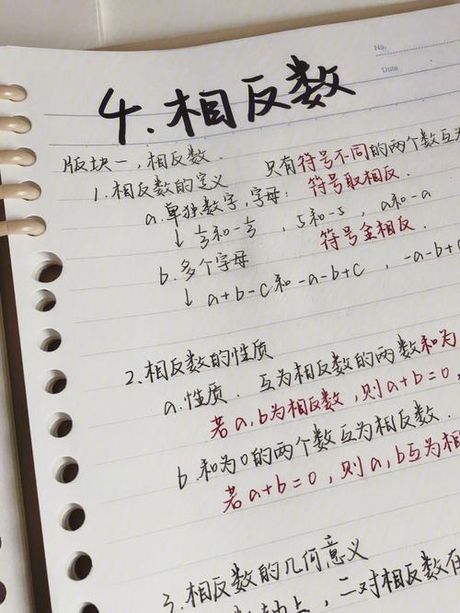 No.
Date
4.相反数
版块一,相反数. 只有符号不同的两个数互为
1.相反数的定义
a.单独数字,字母: 符号取相反.
↓ 1/3和-1/3 , 5和-5 , a和-a
b.多个字母 符号全相反.
↓ a+b-c和-a-b+c , -a-b+
2.相反数的性质
a.性质. 互为相反数的两数和为
若a,b为相反数,则a+b=0,
b.和为0的两个数互为相反数.
若a+b=0,则a,b互为相
3.相反数的几何意义
轴上,二对相反数在